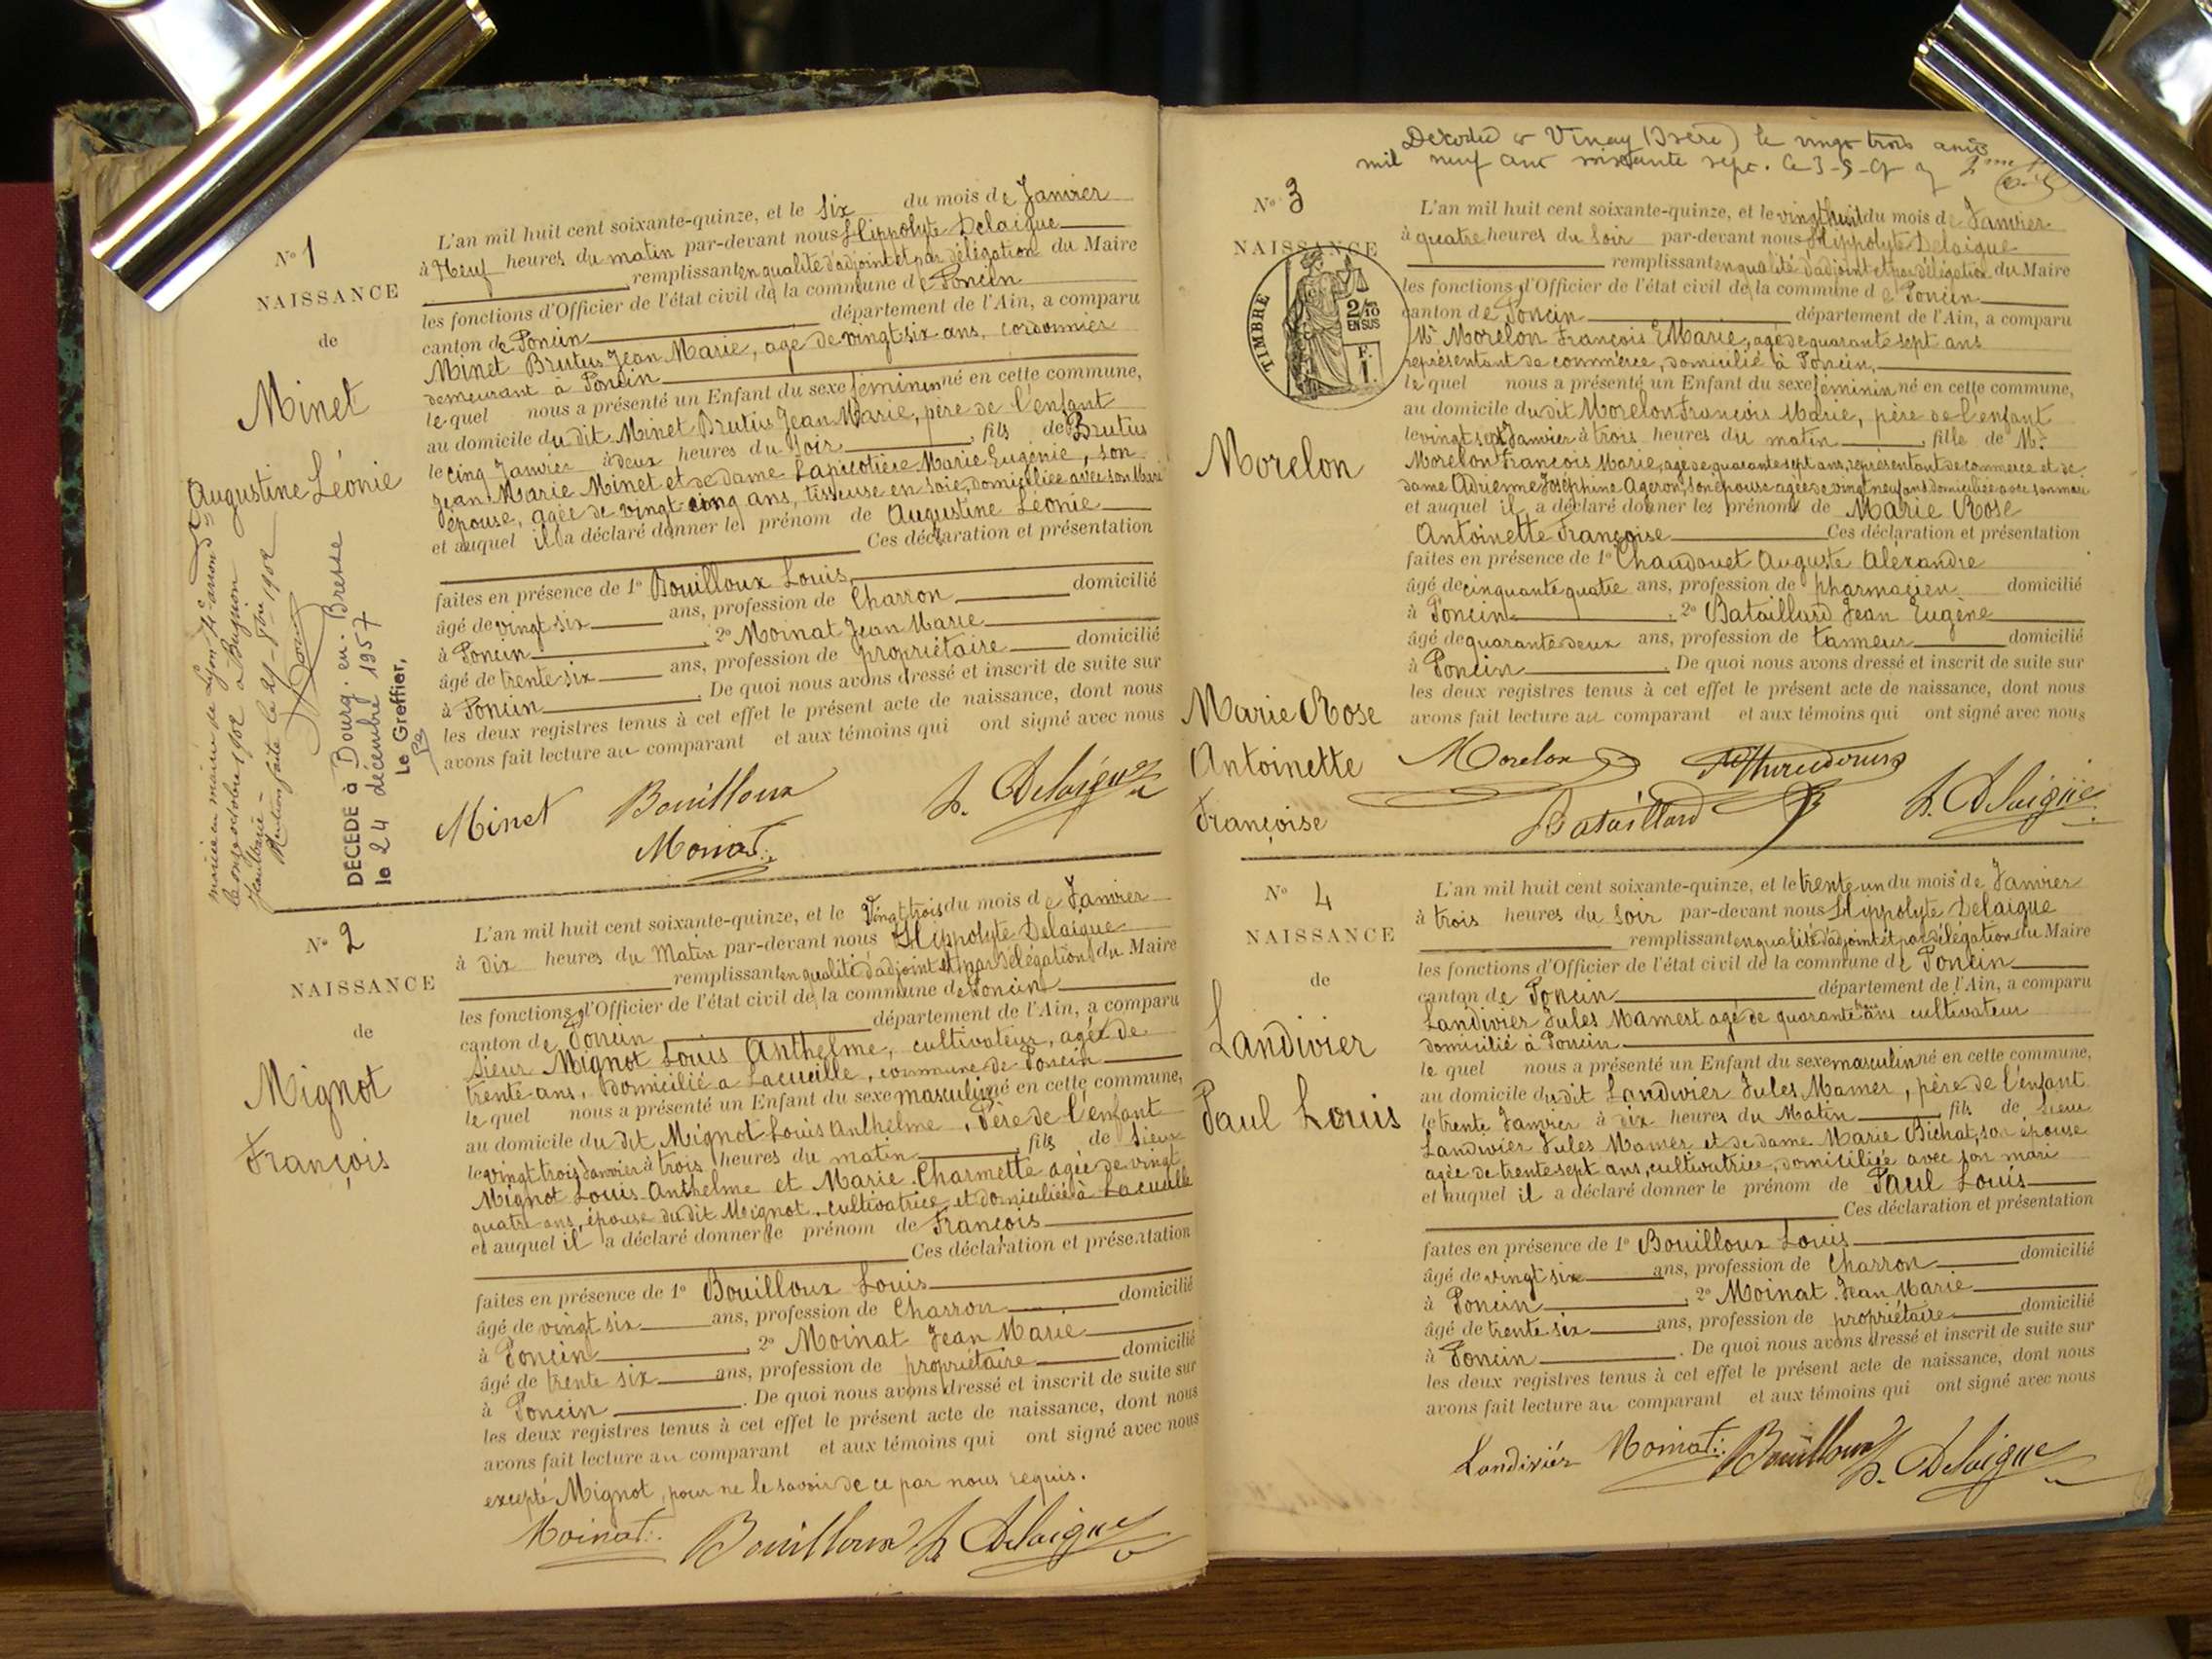 N° 1
NAISSANCE
de
Minet
Augustine Léonie
L'an mil huit cent soixante-quinze, et le six du mois de Janvier
à Neuf heures du matin par-devant nous Hippolyte Delaigue
remplissant en qualité d'adjoint et par délégation du Maire
les fonctions d'Officier de l'état civil de la commune de Poncin
canton de Poncin département de l'Ain, a comparu
Minet Brutus Jean Marie, agé de vingt-six ans, cordonnier
demeurant à Poncin
lequel nous a présenté un Enfant du sexe féminin né en cette commune,
au domicile du dit Minet Brutus Jean Marie, père de l'enfant
le cinq Janvier à deux heures du soir, fils de Brutus
Jean Marie Minet et de dame Lapicotière Marie Eugénie, son
épouse, agée de vingt-cinq ans, tisseuse en soie, domiciliée avec son Mari
et auquel il a déclaré donner le prénom de Augustine Léonie
Ces déclaration et présentation
faites en présence de 1° Bouilloux Louis,
âgé de vingt six ans, profession de Charron domicilié
à Poncin, 2° Moinat Jean Marie
âgé de trente six ans, profession de propriétaire domicilié
à Poncin. De quoi nous avons dressé et inscrit de suite sur
les deux registres tenus à cet effet le présent acte de naissance, dont nous
avons fait lecture au comparant et aux témoins qui ont signé avec nous
Minet Bouilloux h. Delaigue
Moinat
DECEDÉ à Bourg.en.Bresse
le 24 décembre 1957
Le Greffier,
N° 2
NAISSANCE
de
Mignot
François
L'an mil huit cent soixante-quinze, et le Vingt trois du mois de Janvier
à dix heures du Matin par-devant nous Hippolyte Delaigue
remplissant en qualité d'adjoint et par délégation du Maire
les fonctions d'Officier de l'état civil de la commune de Poncin
canton de Poncin département de l'Ain, a comparu
Sieur Mignot Louis Anthelme, cultivateur, agé de
trente ans, domicilié a Lacueille, commune de Poncin
lequel nous a présenté un Enfant du sexe masculin né en cette commune,
au domicile du dit Mignot Louis Anthelme, Père de l'enfant
le vingt trois Janvier à trois heures du matin, fils de Sieur
Mignot Louis Anthelme et Marie Charmette agée de vingt
quatre ans, épouse du dit Mignot, cultivatrice et domiciliée à Lacueille
et auquel il a déclaré donner le prénom de François
Ces déclaration et présentation
faites en présence de 1° Bouilloux Louis
âgé de vingt six ans, profession de Charron domicilié
à Poncin, 2° Moinat Jean Marie
âgé de trente six ans, profession de propriétaire domicilié
à Poncin. De quoi nous avons dressé et inscrit de suite sur
les deux registres tenus à cet effet le présent acte de naissance, dont nous
avons fait lecture au comparant et aux témoins qui ont signé avec nous
excepté Mignot, pour ne le savoir de ce par nous requis.
Moinat Bouilloux h. Delaigue
à Vinay (Isère) le vingt trois
mil neuf cent soixante sept. le 3-5-67
N° 3
NAISSANCE
TIMBRE
2/10
EN SUS
F.
1.
Morelon
Marie Rose
Antoinette
Françoise
L'an mil huit cent soixante-quinze, et le vingt huit du mois de Janvier
à quatre heures du soir par-devant nous Hippolyte Delaigue
remplissant en qualité d'adjoint et par délégation du Maire
les fonctions d'Officier de l'état civil de la commune de Poncin
canton de Poncin département de l'Ain, a comparu
Mr Morelon François Marie, agé de quarante sept ans
représentant de commerce, domicilié à Poncin,
lequel nous a présenté un Enfant du sexe féminin né en cette commune,
au domicile du dit Morelon François Marie, père de l'enfant
le vingt sept Janvier à trois heures du matin, fille de Mr
Morelon François Marie, agé de quarante sept ans, représentant de commerce et de
dame Adrienne Joséphine Ageron, son épouse agée de vingt neuf ans domiciliée avec son mari
et auquel il a déclaré donner les prénoms de Marie Rose
Antoinette Françoise Ces déclaration et présentation
faites en présence de 1° Chaudouet Auguste Alexandre
âgé de cinquante quatre ans, profession de pharmacien domicilié
à Poncin, 2° Bataillard Jean Eugène
âgé de quarante deux ans, profession de tanneur domicilié
à Poncin. De quoi nous avons dressé et inscrit de suite sur
les deux registres tenus à cet effet le présent acte de naissance, dont nous
avons fait lecture au comparant et aux témoins qui ont signé avec nous
Morelon
Bataillard h. Delaigue
N° 4
NAISSANCE
de
Landivier
Paul Louis
L'an mil huit cent soixante-quinze, et le trente un du mois de Janvier
à trois heures du soir par-devant nous Hippolyte Delaigue
remplissant en qualité d'adjoint et par délégation du Maire
les fonctions d'Officier de l'état civil de la commune de Poncin
canton de Poncin département de l'Ain, a comparu
Landivier Jules Mamert agé de quarante ans cultivateur
domicilié à Poncin
lequel nous a présenté un Enfant du sexe masculin né en cette commune,
au domicile du dit Landivier Jules Mamer, père de l'enfant
le trente Janvier à dix heures du Matin, fils de sieur
Landivier Jules Mamer et de dame Marie Bichat, son épouse
agée de trente sept ans, cultivatrice, domiciliée avec son mari
et auquel il a déclaré donner le prénom de Paul Louis
Ces déclaration et présentation
faites en présence de 1° Bouilloux Louis
âgé de vingt six ans, profession de Charron domicilié
à Poncin, 2° Moinat Jean Marie
âgé de trente six ans, profession de propriétaire domicilié
à Poncin. De quoi nous avons dressé et inscrit de suite sur
les deux registres tenus à cet effet le présent acte de naissance, dont nous
avons fait lecture au comparant et aux témoins qui ont signé avec nous
Landivier Moinat Bouilloux h. Delaigue